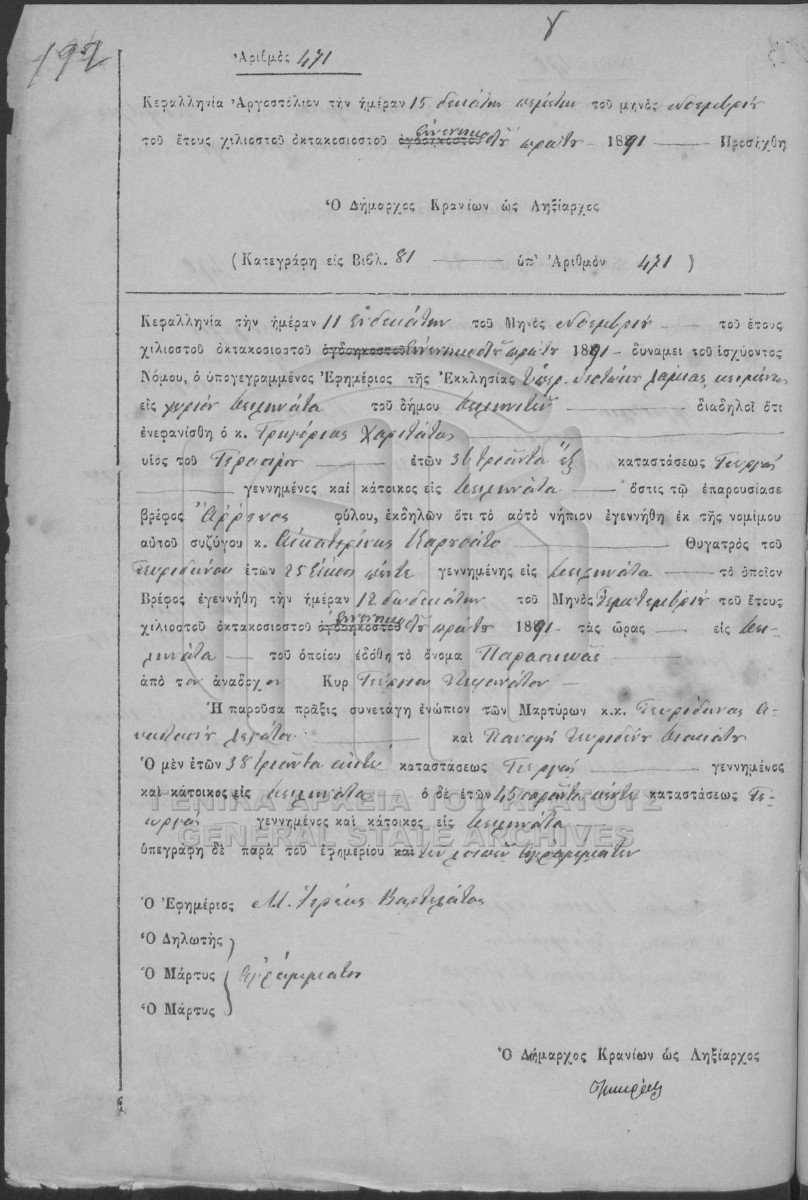 192
Ἀριθμὸς 471
Κεφαλληνία Ἀργοστόλιον τὴν ἡμέραν 15 δεκάτην πέμπτην τοῦ μηνὸς Νοεμβρίου
τοῦ ἔτους χιλιοστοῦ ὀκτακοσιοστοῦ ὀγδοηκοστοῦ ἐννενηκοστοῦ πρώτου 1891 Προσήχθη
Ὁ Δήμαρχος Κρανίων ὡς Ληξίαρχος
(Κατεγράφη εἰς Βιβλ. 81 ὑπ' Ἀριθμὸν 471)
Κεφαλληνία τὴν ἡμέραν 11 ἑνδεκάτην τοῦ Μηνὸς Νοεμβρίου τοῦ ἔτους
χιλιοστοῦ ὀκτακοσιοστοῦ ὀγδοηκοστοῦ ἐννενηκοστοῦ πρώτου 1891 δυνάμει τοῦ ἰσχύοντος
Νόμου, ὁ ὑπογεγραμμένος Ἐφημέριος τῆς Ἐκκλησίας Ὑπερ. κειμένης
εἰς χωρίον τοῦ δήμου διαδηλοῖ ὅτι
ἐνεφανίσθη ὁ κ. Γρηγόριος Χαριτάτος
υἱὸς τοῦ Γερασίμου ἐτῶν 36 τριάντα ἓξ καταστάσεως Γεωργὸς
γεννημένος καὶ κάτοικος εἰς ὅστις τῷ ἐπαρουσίασε
βρέφος Ἄρρενος φύλου, ἐκδηλῶν ὅτι τὸ αὐτὸ νήπιον ἐγεννήθη ἐκ τῆς νομίμου
αὐτοῦ συζύγου κ. Αἰκατερίνης Θυγατρὸς τοῦ
Σπυριδώνου ἐτῶν 25 εἴκοσι πέντε γεννημένης εἰς τὸ ὁποῖον
Βρέφος ἐγεννήθη τὴν ἡμέραν 12 δωδεκάτην τοῦ Μηνὸς Σεπτεμβρίου τοῦ ἔτους
χιλιοστοῦ ὀκτακοσιοστοῦ ὀγδοηκοστοῦ ἐννενηκοστοῦ πρώτου 1891 τὰς ὥρας εἰς
τοῦ ὁποίου ἐδόθη τὸ ὄνομα Παρασκευᾶς
ἀπὸ τον ἀναδοχον Κυρ Γεώργιον
Ἡ παροῦσα πρᾶξις συνετάγη ἐνώπιον τῶν Μαρτύρων κ.κ. Σπυρίδωνος Ἀ-
ναστασίου καὶ Παναγῆ Σπυριδών
Ὁ μὲν ἐτῶν 38 τριάντα ὀκτὼ καταστάσεως Γεωργὸς γεννημένος
καὶ κάτοικος εἰς ὁ δὲ ἐτῶν 45 σαράντα πέντε καταστάσεως Γε-
ωργὸς γεννημένος καὶ κάτοικος εἰς
ὑπεγράφη δὲ παρὰ τοῦ ἐφημερίου καὶ τῶν λοιπῶν ἀγραμμάτων
ΓΕΝΙΚΑ ΑΡΧΕΙΑ ΤΟΥ ΚΡΑΤΟΥΣ
GENERAL STATE ARCHIVES
Ὁ Ἐφημέριος Μ. Ἱερεὺς
Ὁ Δηλωτής
Ὁ Μάρτυς ἀγράμματοι
Ὁ Μάρτυς
Ὁ Δήμαρχος Κρανίων ὡς Ληξίαρχος